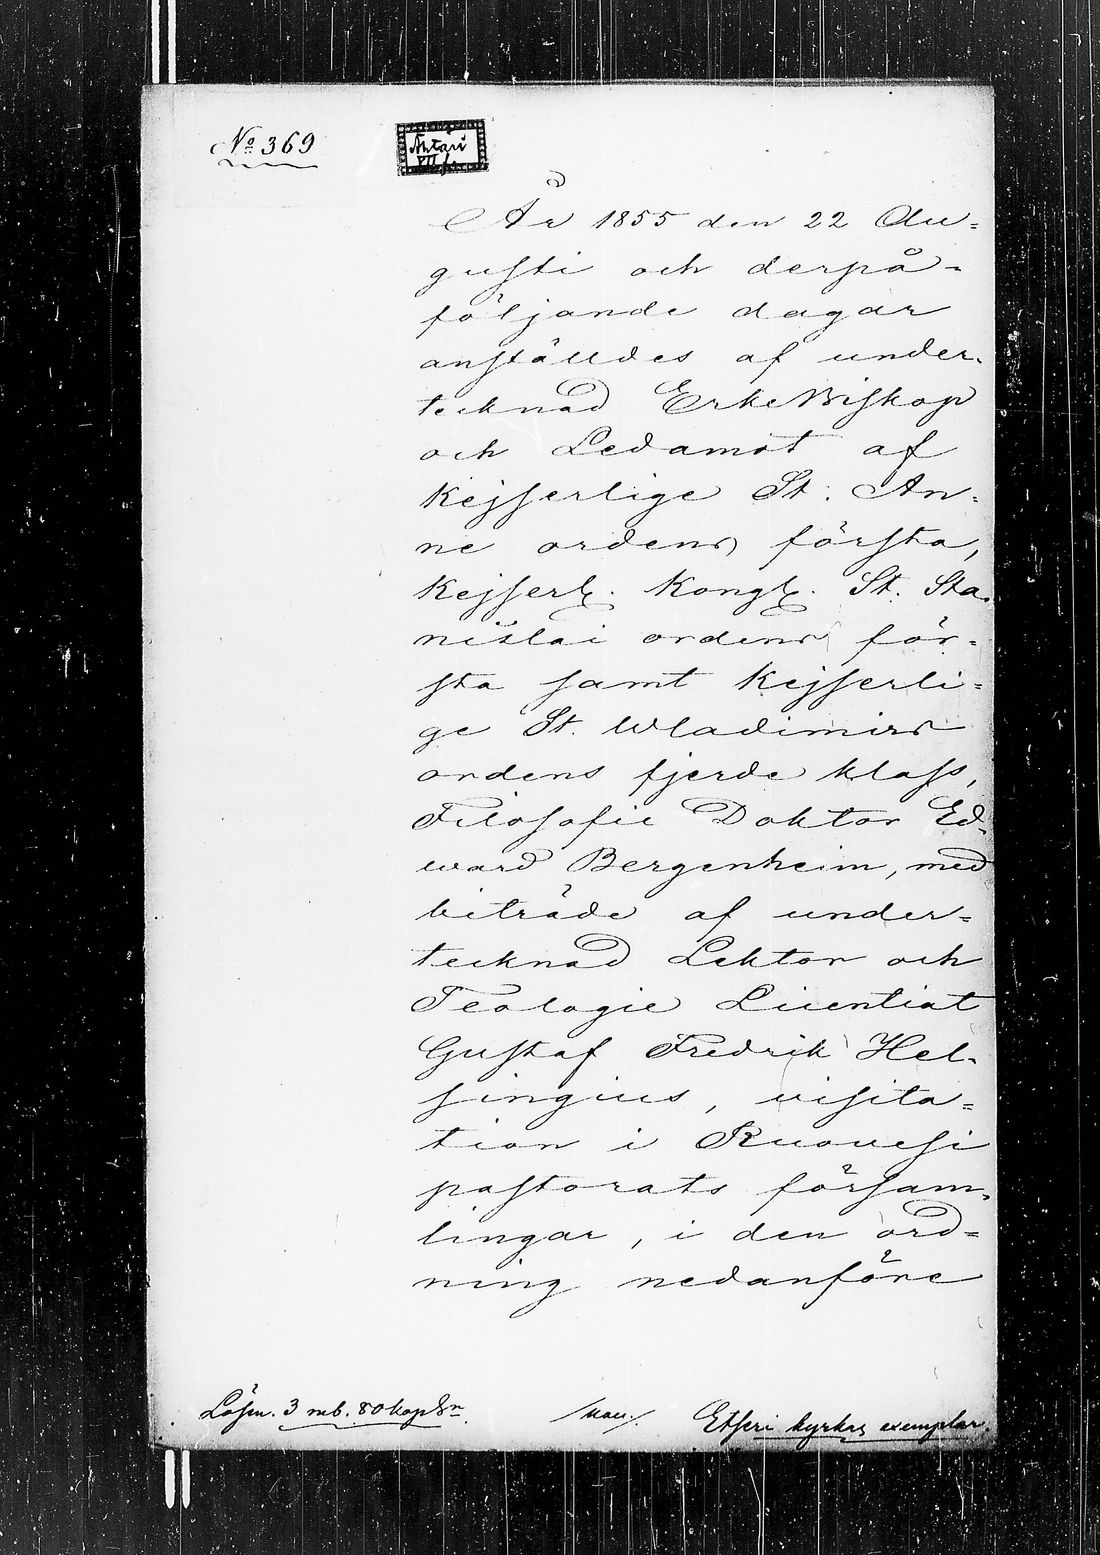 No 369
Ähtäri
År 1855 den 22 Au=
gusti och derpå=
följande dagar
anställdes af under=
tecknad ErkeBiskop
och Ledamot af
Kejserlige St. An=
ne ordens första,
Kejserl. Kongl. St. Sta=
nislai ordens för=
sta samt Kejserli=
ge St. Wladimirs
ordens fjerde klass,
Filosofie Doktor Ed=
ward Bergenheim, med
biträde af under=
tecknad Lektor och
Teologie Licentiat
Gustaf Fredrik Hel=
singius, visita=
tion i Ruovesi
pastorats försam=
lingar, i den ord=
ning nedanföre
Lösen. 3 rub. 80 kop Sr.
Etseri kyrkas exemplar.